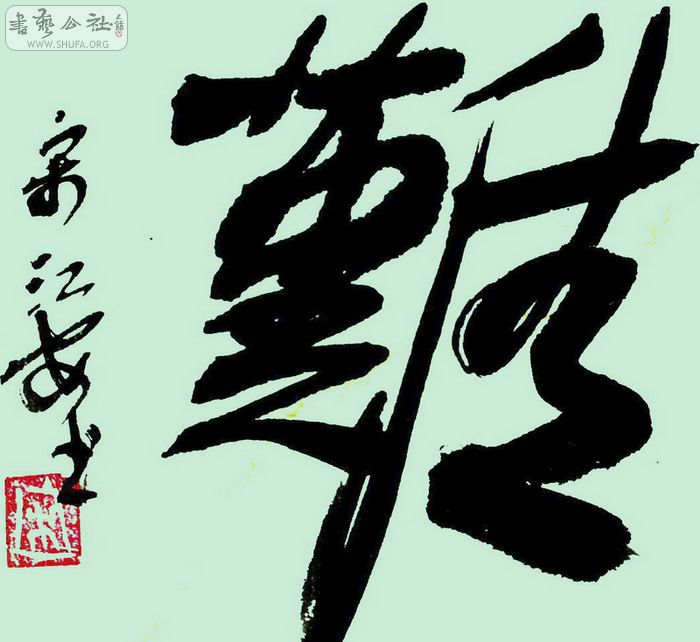 書藝公社
WWW.SHUFA.ORG
難
宋江安书